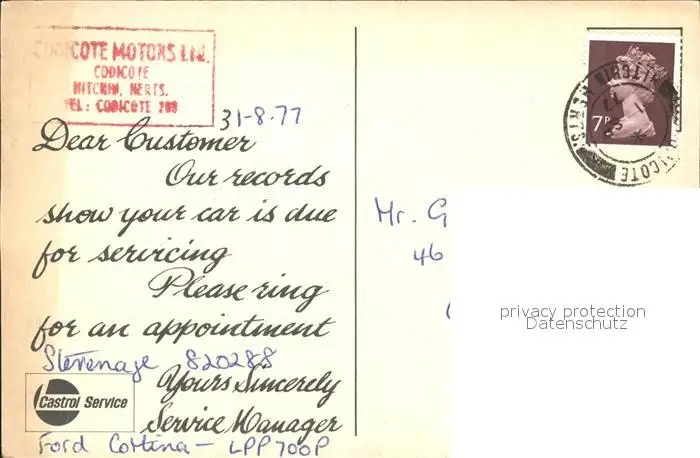 CODICOTE MOTORS LTD.
CODICOTE
HITCHIN, HERTS.
TEL: CODICOTE 288
31-8-77
Dear Customer
Our records
show your car is due
for servicing
Please ring
for an appointment
Stevenage 820288
Yours Sincerely
Service Manager
Castrol Service
Ford Cortina - LPP 700P
7P
HITCHIN HERTS
Mr. G
46
privacy protection
Datenschutz